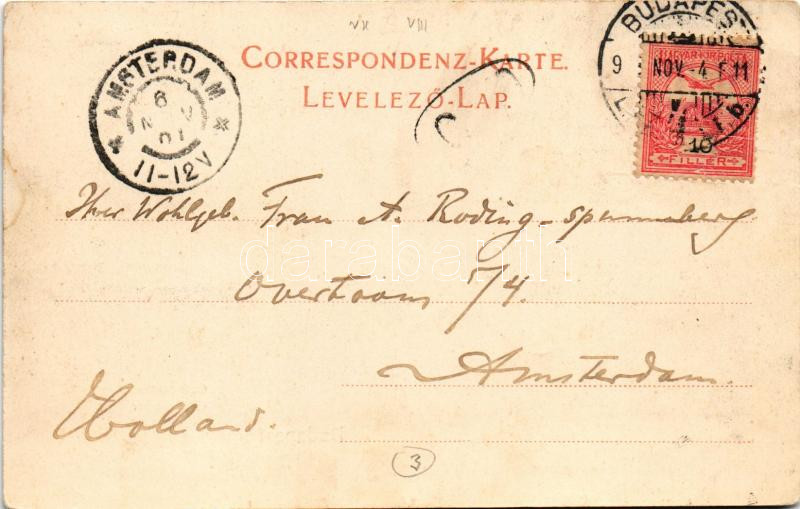 VIII
CORRESPONDENZ-KARTE.
LEVELEZŐ-LAP.
AMSTERDAM
6
NOV
01
11-12V
BUDAPEST
9 NOV. 4 F 11
MAGYAR KIR. POSTA
10
FILLER
Ihrer Wohlgeb. Frau A. Roding-Spanneberg.
Overtoom 54.
Amsterdam.
Holland.
3
darabanth